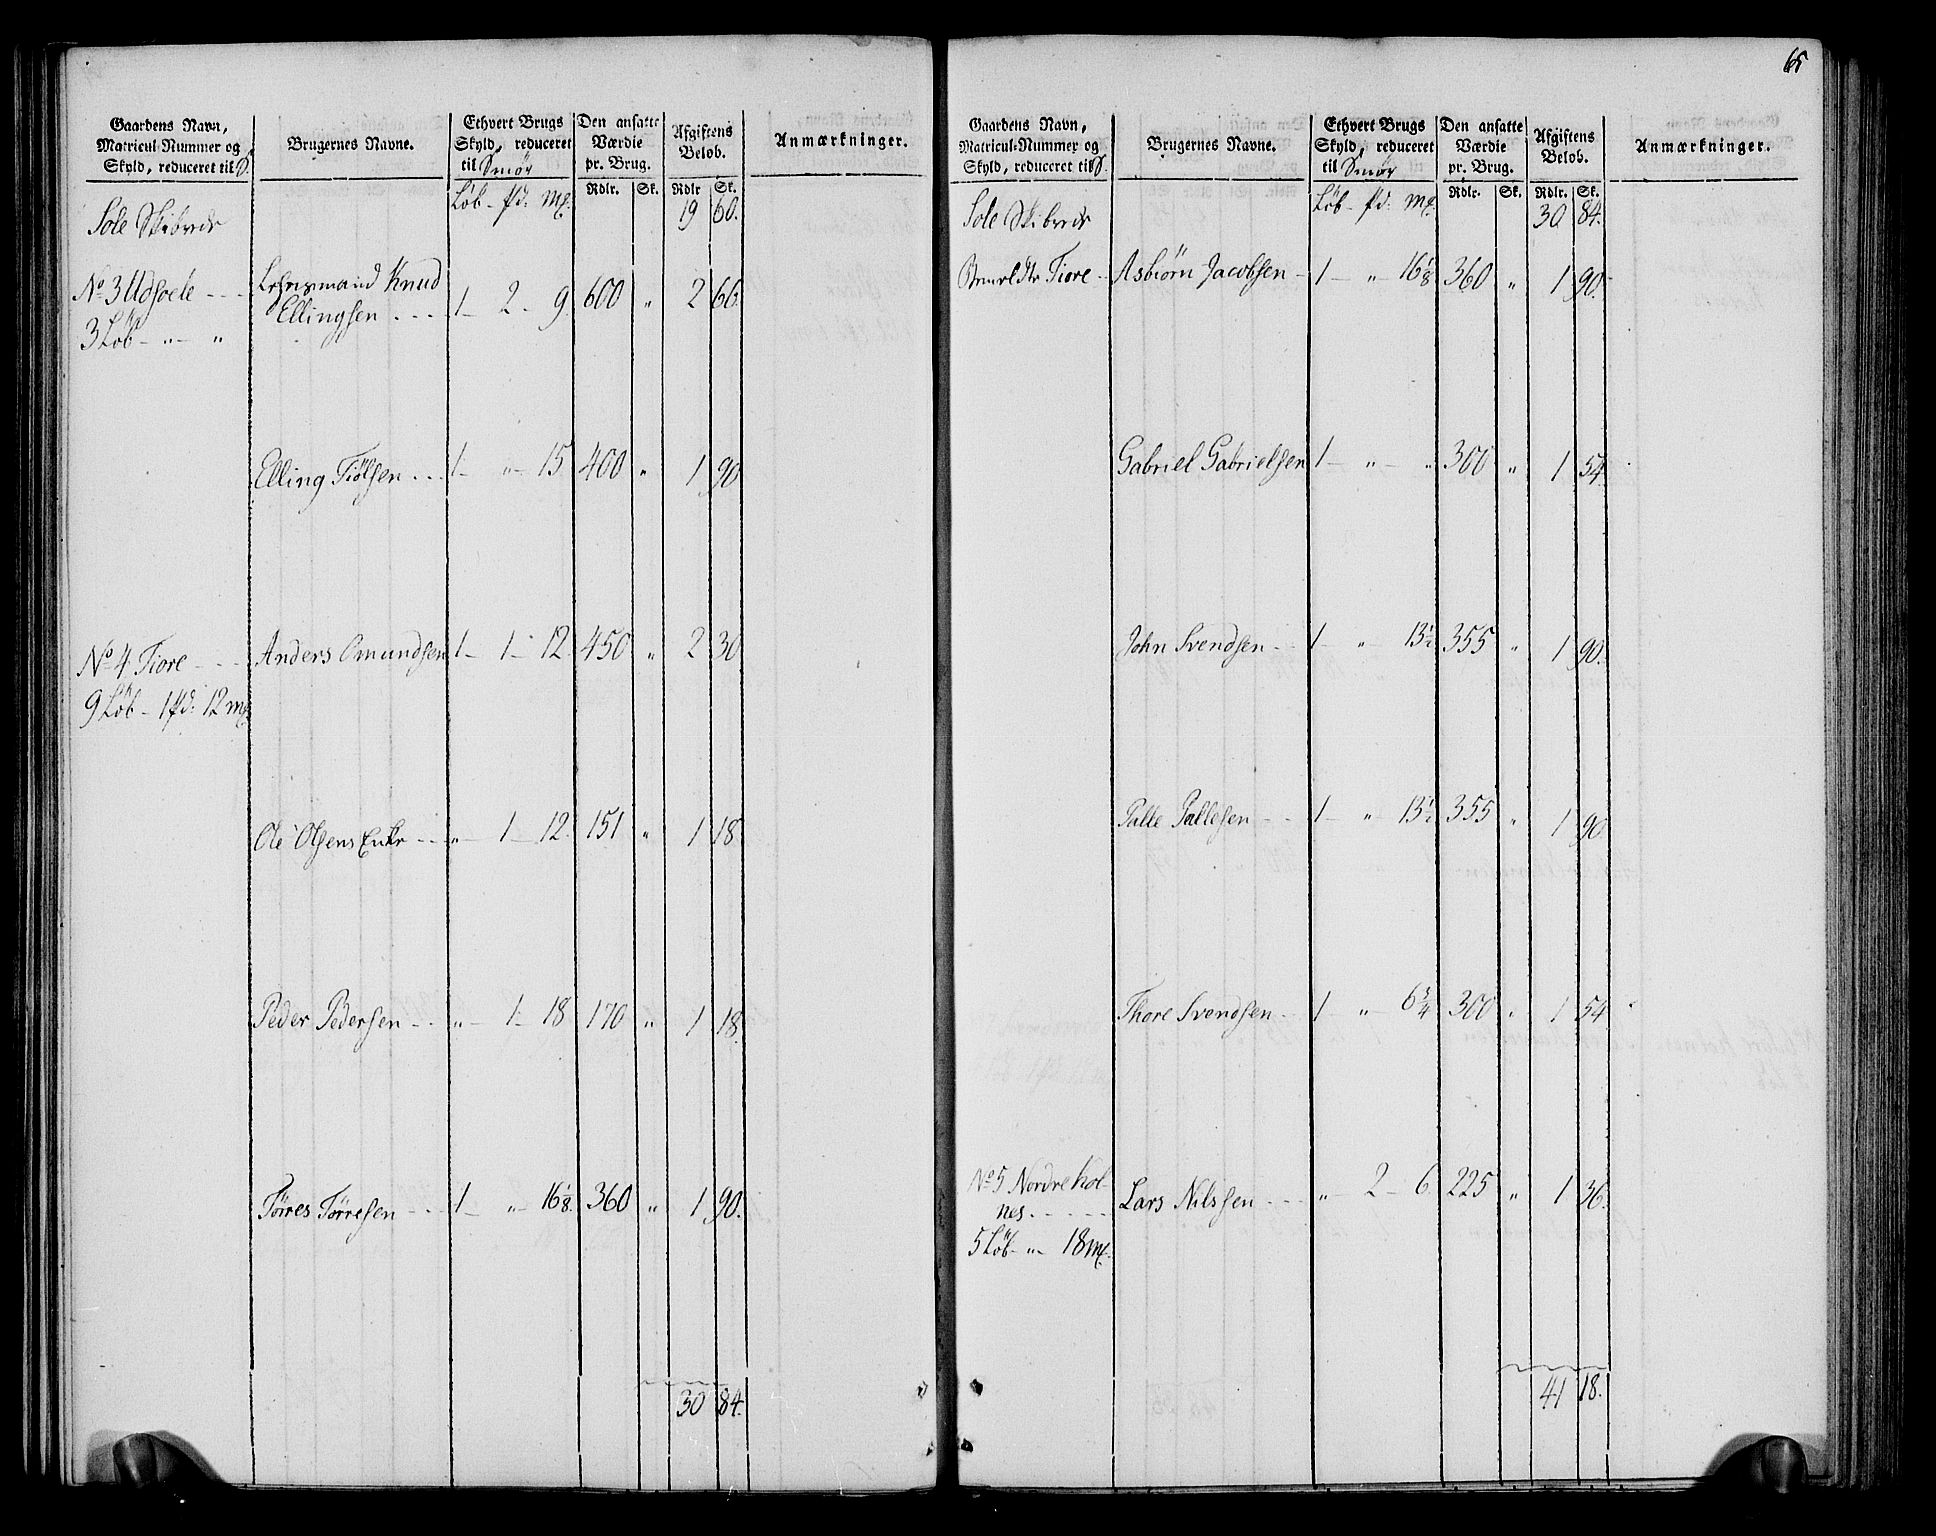 65
Gaardens Navn, Matricul-Nummer og Skyld, reduceret til
Brugernes Navne.
Ethvert Brugs Skyld, reduceret til Smör
Den ansatte Værdie pr. Brug.
Afgiftens Beløb.
Anmærkninger.
Rdlr. Sk. Rdlr Sk.
Sole Skibrede Löb - pd: m&. 19 60.
No 3 Udsoele - - - Lehnsmand Knud
Ellingsen . . . . 1 - 2 - 9 600 " 2 66.
3 Löb - " - "
Elling Tiölsen . . . 1 - " - 15 400 " 1 90
No 4 Tiore - - - Anders Omundsen 1 - 1 - 12 450 " 2 30
9 Löb - 1 pd: 12 m&
Ole Olsens Enke - - - " - 1 - 12. 151 " 1 18
Peder Pedersen - - " - 1 - 18 170 " 1 18.
Törres Törresen - - - 1 - " - 16 1/8. 360 " 1 90.
30 84.
Gaardens Navn, Matricul-Nummer og Skyld, reduceret til
Brugernes Navne.
Ethvert Brugs Skyld, reduceret til Smör
Den ansatte Værdie pr. Brug.
Afgiftens Beløb.
Anmærkninger.
Rdlr. Sk. Rdlr. Sk.
Sole Skibrede Löb - pd: m&. 30 84.
Tiore - Asbiörn Jacobsen - 1 - " 16 1/8 360 " 1 90.
Gabriel Gabrielsen 1 - " - " 300 " 1 54.
John Svendsen - - 1 - " - 13 1/2 355 " 1 90.
Palle Pallesen - - 1 - " - 13 1/2 355 " 1 90
Thore Svendsen - - 1 - " - 6 3/4 300 " 1 54
No 5 Nordre hol- Lars Nilssen - - - " - 2 - 6. 225 " 1 36.
nes. - - - - -
5 Löb - " - 18 m&.
41 18.